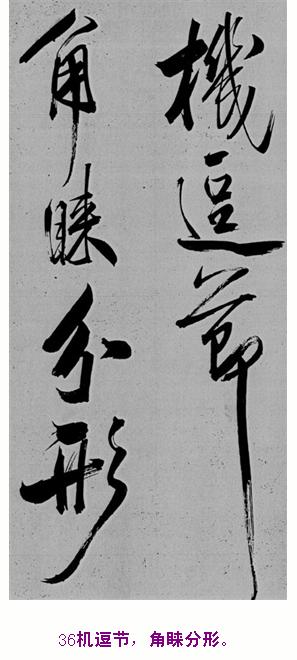 機逗節
角睐分形
36机逗节，角睐分形。